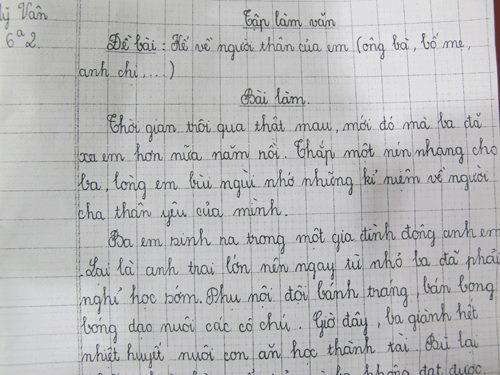 Lý Vân
6ª2.
Tập làm văn
Đề bài : Kể về người thân của em (ông bà, bố mẹ,
anh chị ,....)
Bài làm.
Thời gian trôi qua thật mau, mới đó mà ba đã
xa em hơn nữa năm rồi. Thắp một nén nhang cho
ba, lòng em bùi ngùi nhớ những kỉ niệm về người
cha thân yêu của mình.
Ba em sinh ra trong một gia đình đông anh em
. Lại là anh trai lớn nên ngay từ nhỏ ba đã phải
nghỉ học sớm. Phụ nội đội bánh tráng, bán bong
bóng dạo nuôi các cô chú. Giờ đây, ba giành hết
nhiệt huyết nuôi con ăn học thành tài. Bù lại
không đạt được